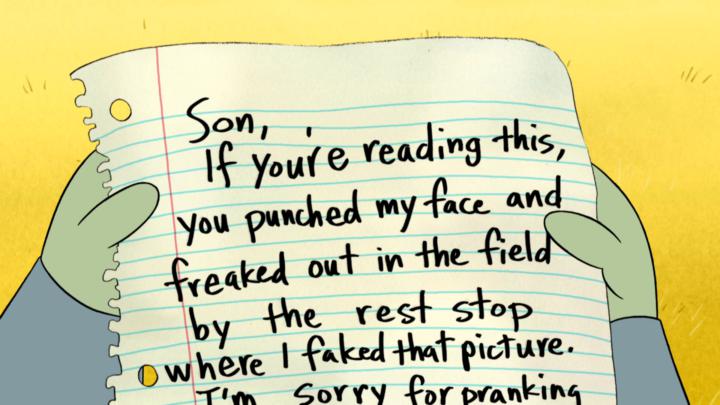 Son,
If you're reading this,
you punched my face and
freaked out in the field
by the rest stop
where I faked that picture.
I'm sorry for pranking